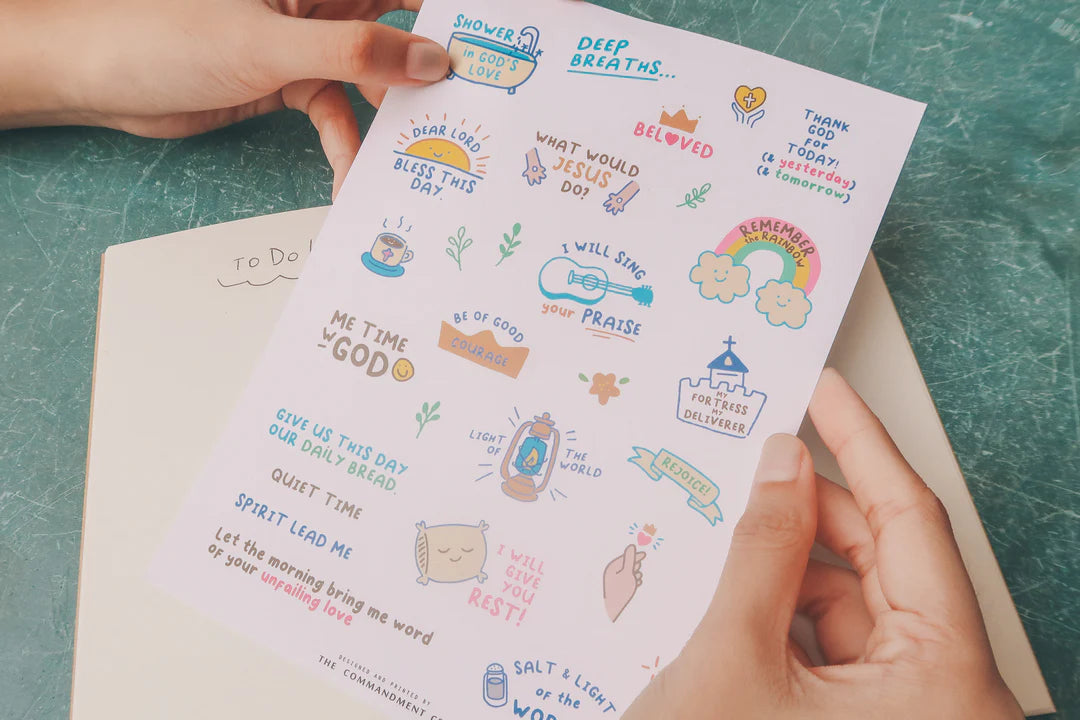 SHOWER
in GOD'S
LOVE
DEEP
BREATHS...
THANK
GOD
FOR
TODAY!
(& yesterday)
(& tomorrow)
BELOVED
DEAR LORD
BLESS THIS
DAY.
WHAT WOULD
JESUS
DO?
REMEMBER
the RAINBOW
I WILL SING
your PRAISE
TO DO
ME TIME
w GOD
BE OF GOOD
COURAGE
MY
FORTRESS
MY
DELIVERER
GIVE US THIS DAY
OUR DAILY BREAD.
LIGHT
OF
THE
WORLD
REJOICE!
QUIET TIME
SPIRIT LEAD ME
I WILL
GIVE
YOU
REST!
Let the morning bring me word
of your unfailing love
DESIGNED AND PRINTED BY
THE COMMANDMENT
SALT & LIGHT
of the